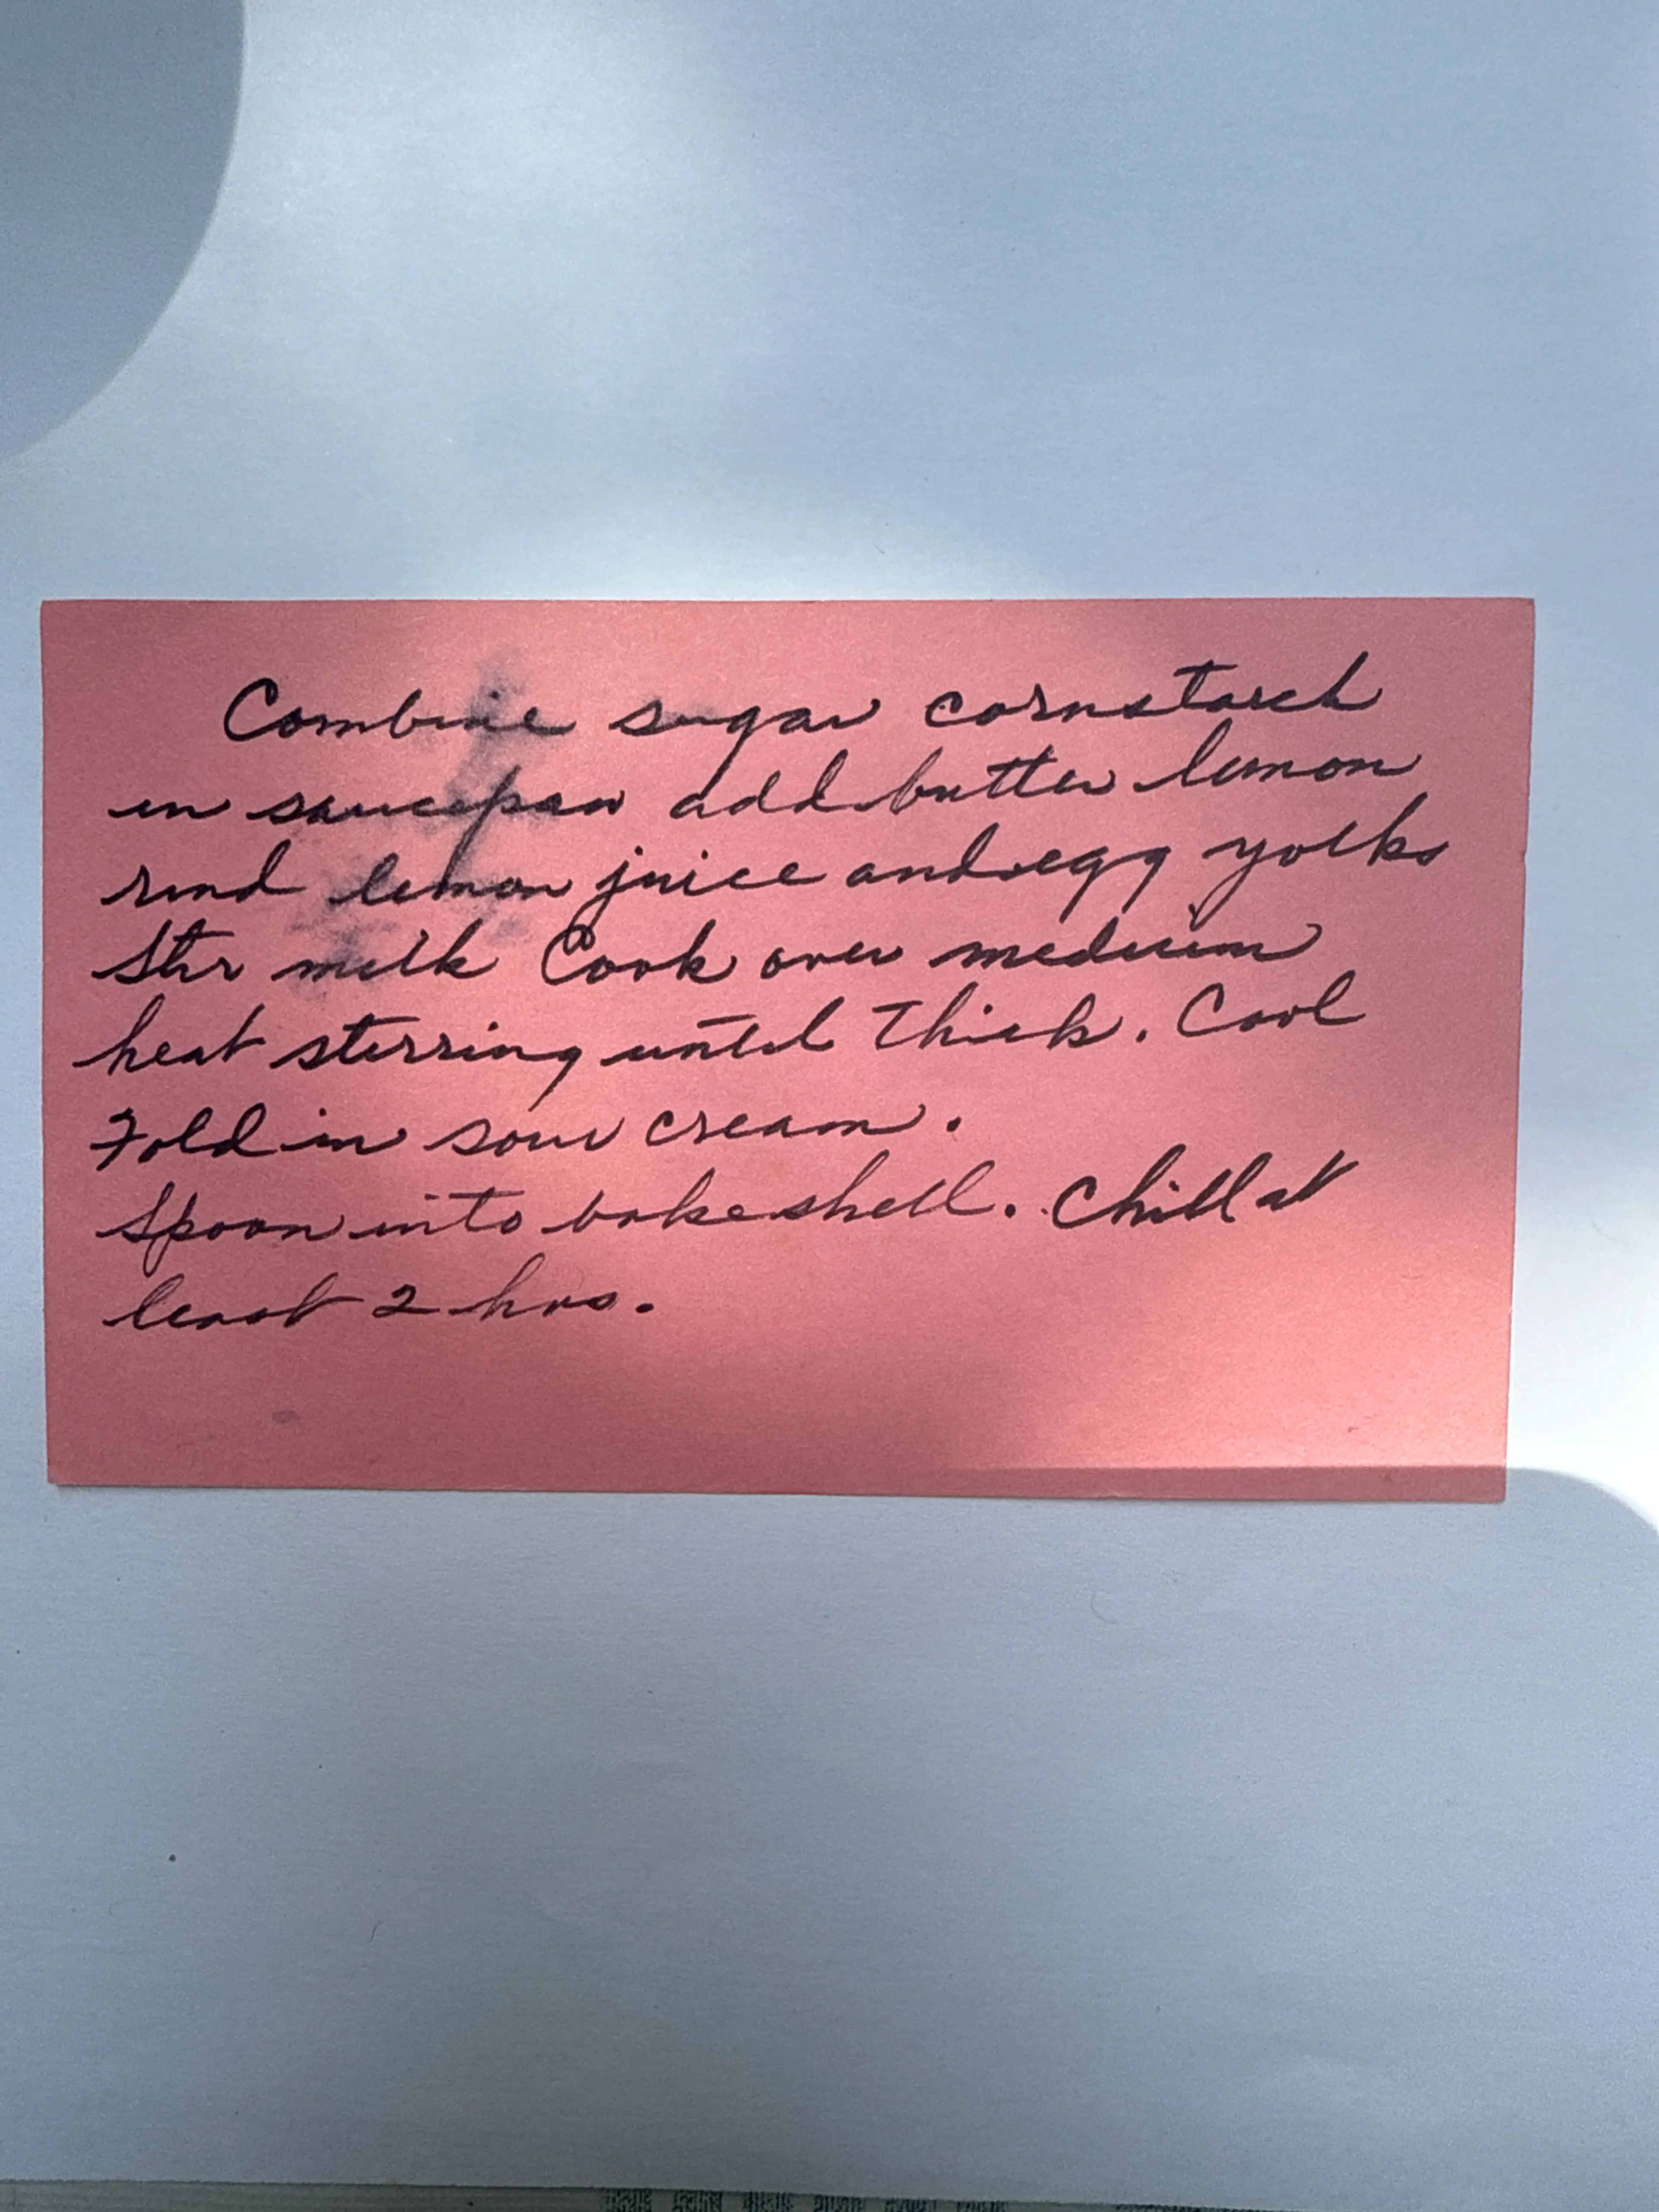 Combine sugar cornstarch
in saucepan add butter lemon
rind lemon juice and egg yolks
Stir milk Cook over medium
heat stirring until thick. Cool
Fold in sour cream.
Spoon into bake shell. Chill at
least 2 hrs.